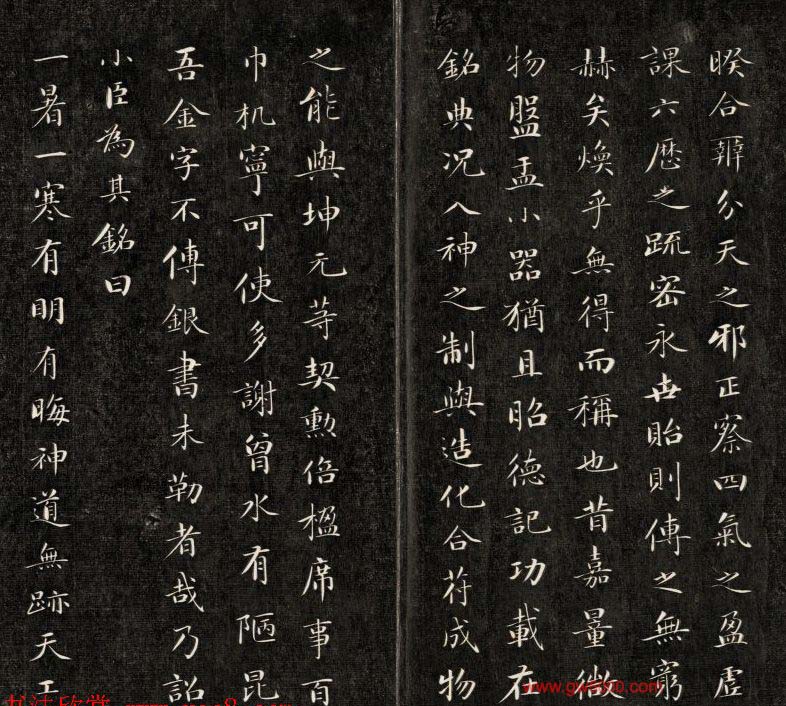 睽合辭分天之邪正察四氣之盈虛
課六歷之疏密永世貽則傳之無窮
赫矣煥乎無得而稱也昔嘉量微
物盤盂小器猶且昭德記功載在
銘典況入神之制與造化合苻成物
之能與坤元等契勳倍楹席事百
巾机寧可使多謝曾水有陋昆
吾金字不傳銀書未勒者哉乃詔
小臣為其銘曰
一暑一寒有明有晦神道無跡天工
书法欣赏